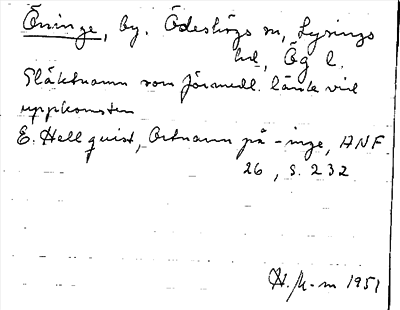 Öninge, by. Ödeshögs sn, Lysings
hd, Ög l.
Släktnamn som förmedl. länk vid
uppkomsten
E. Hellquist, Ortnamn på -inge, ANF
26, s. 232
H. M-m 1951